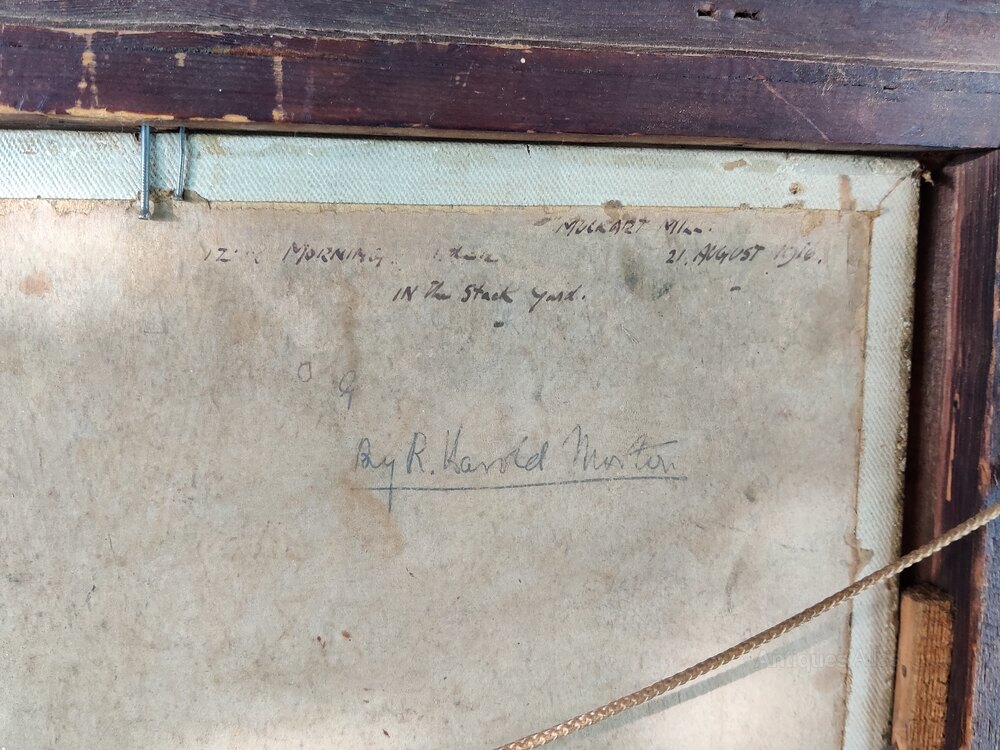 MUCKART MILL.
MORNING. 21. AUGUST 1916.
IN The Stack Yard.
O G
By R. Harold Morton
Antiques